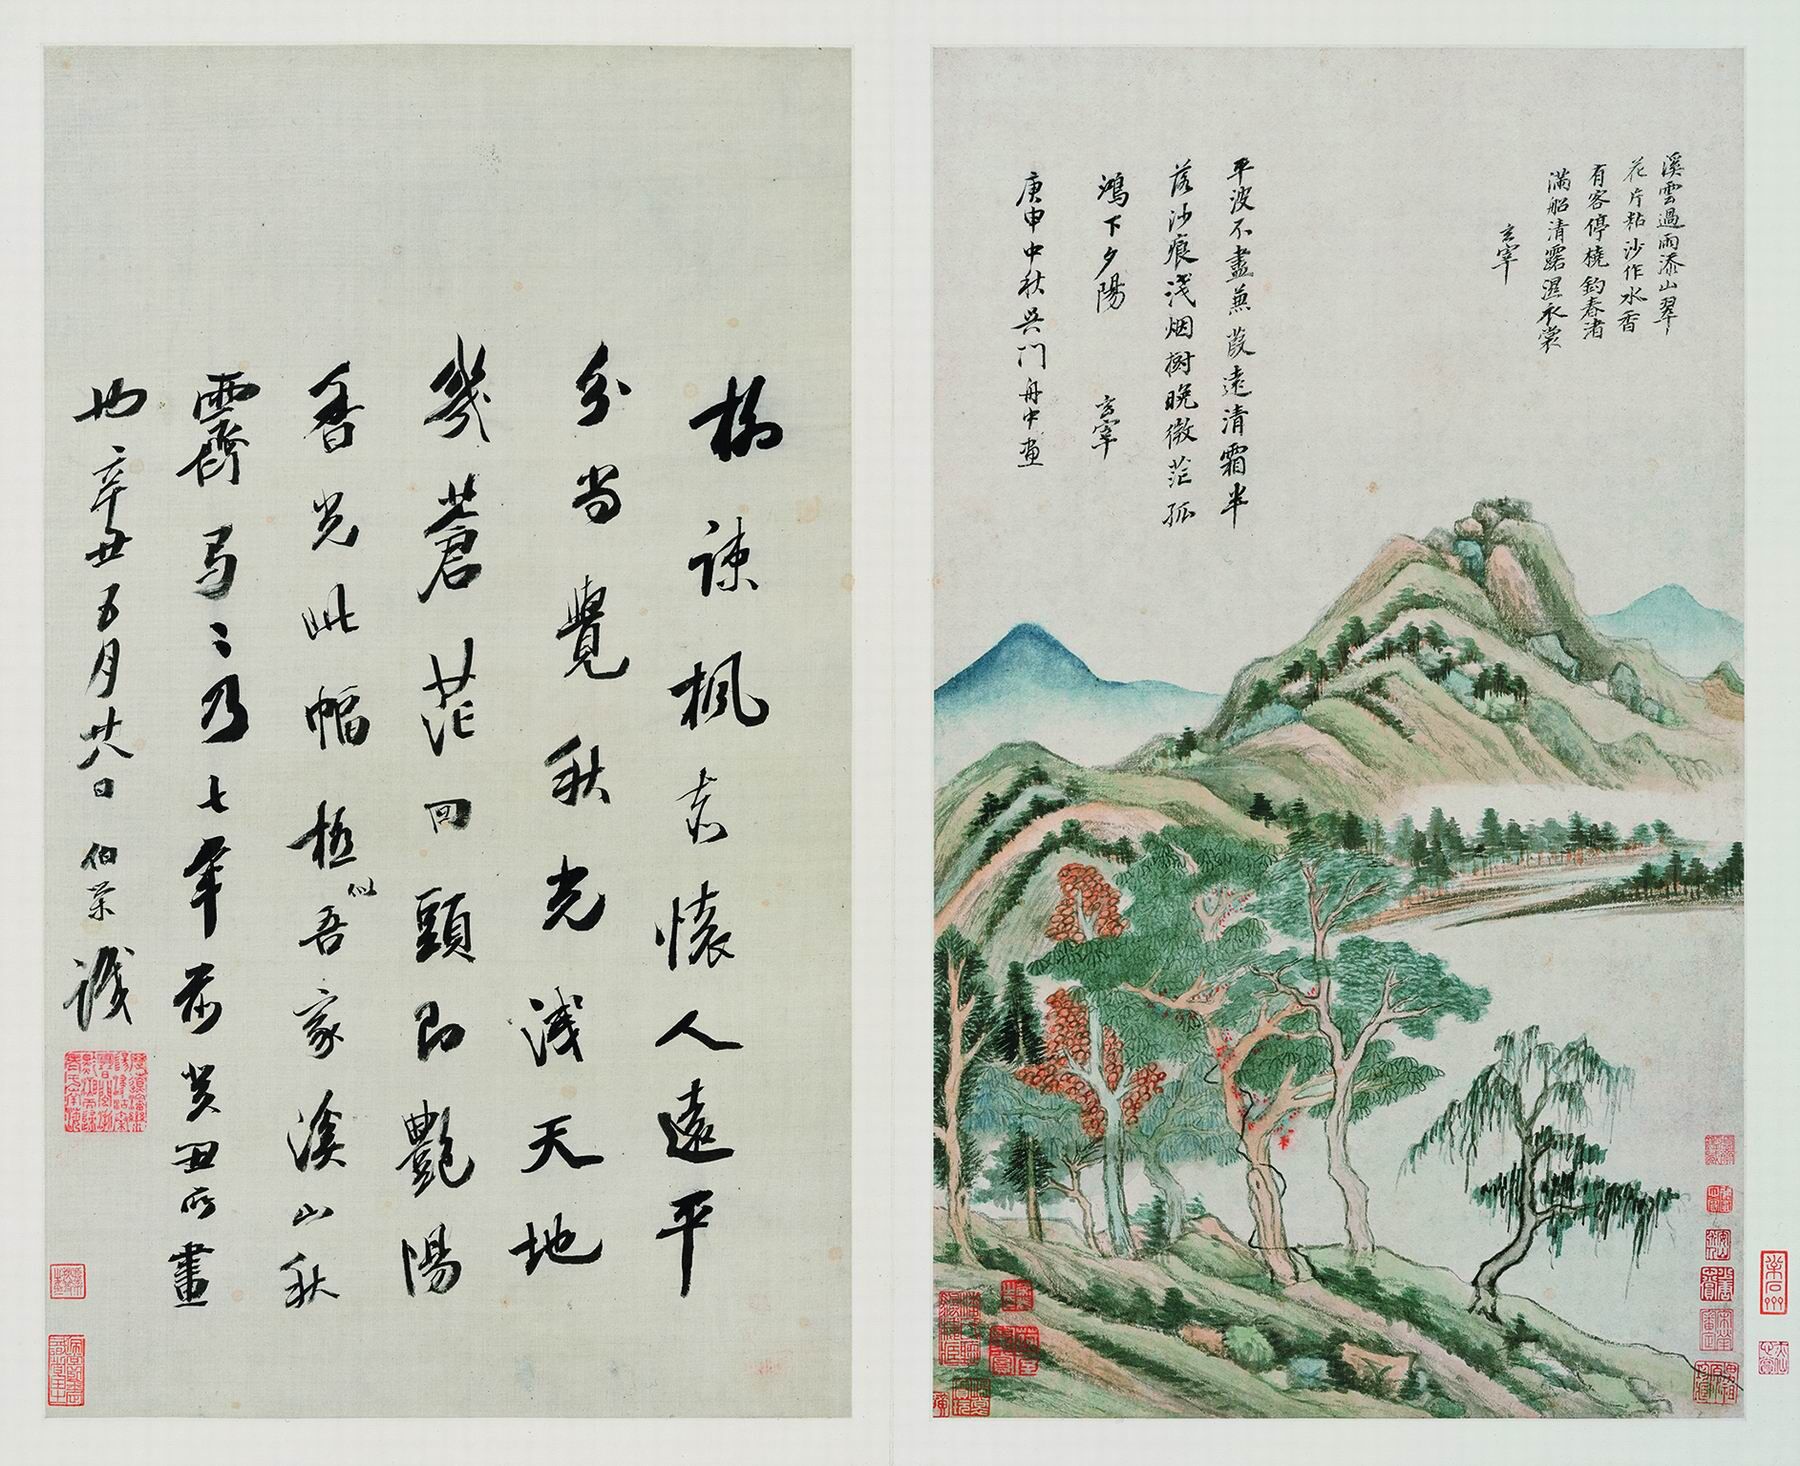 溪雲過雨添山翠
花片粘沙作水香
有客停橈釣春渚
滿船清露濕衣裳
玄宰
平波不盡蒹葭遠清霜半
落沙痕淺烟樹晚微茫孤
鴻下夕陽 玄宰
庚申中秋吳門舟中畫
柳疎楓懷人遠平
分尚覺秋光淺天地
幾蒼茫回頭即艷陽
香光此幅極似吾家溪山秋
霽乃七年前癸丑所畫
也辛丑五月廿八日伯榮識